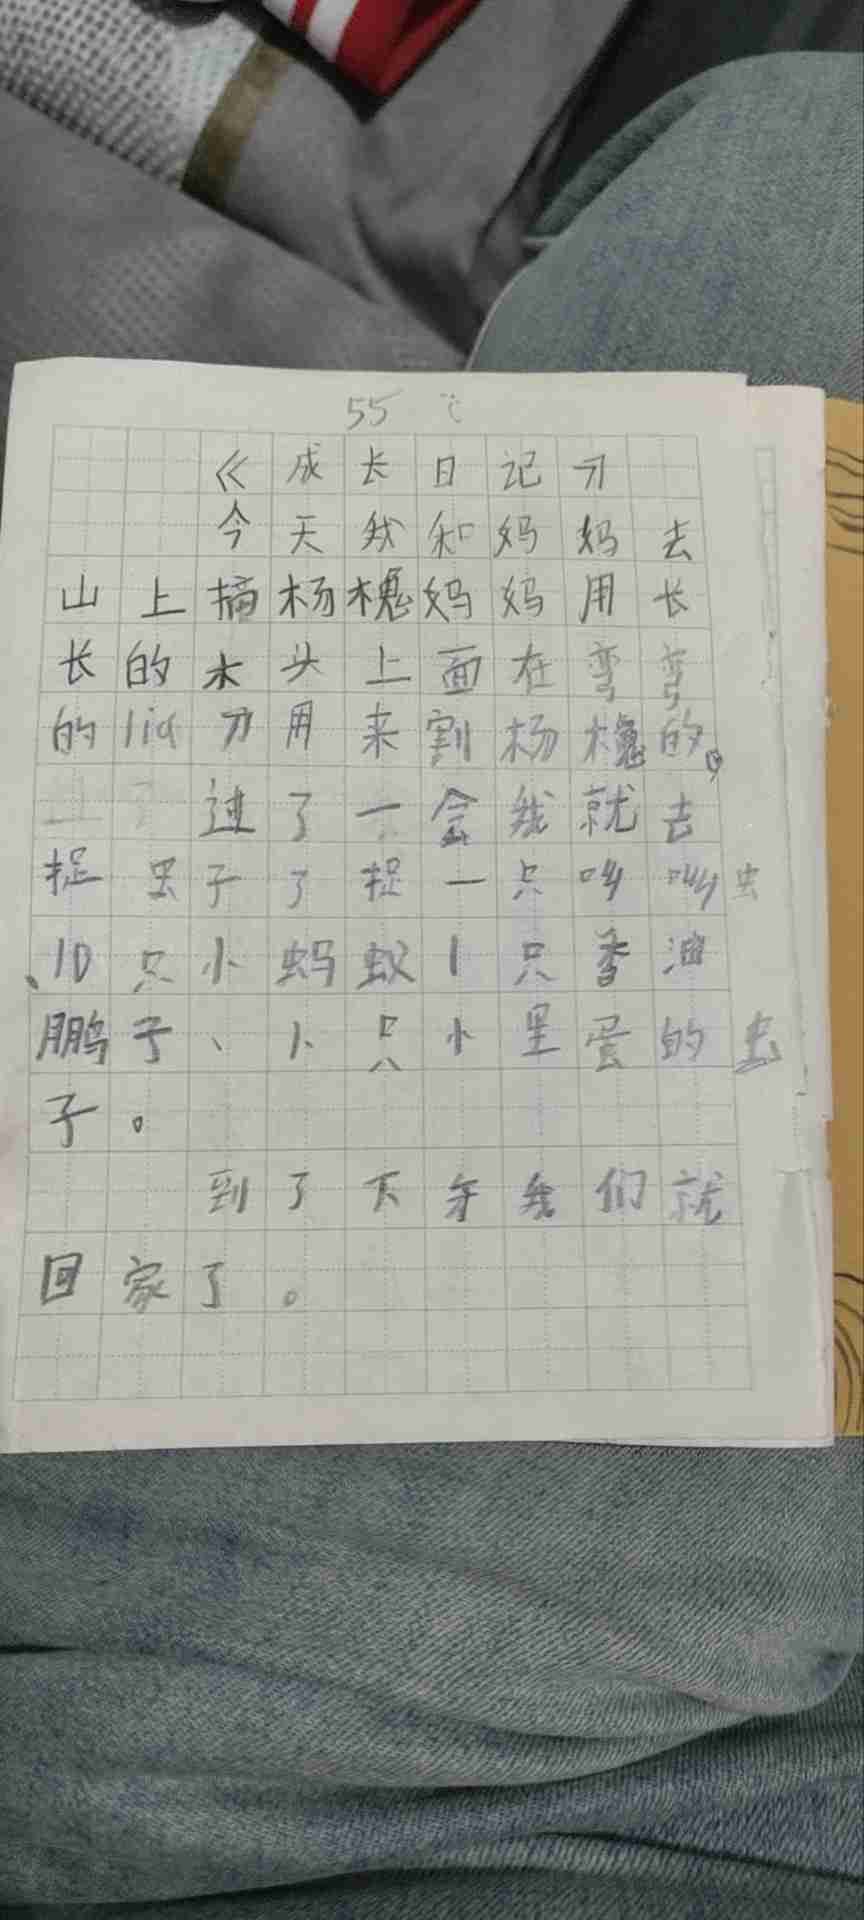 55 ℃
《成长日记》
今天我和妈妈去
山上摘杨槐妈妈用长
长的木头上面在弯弯
的lia刀用来割杨槐的。
过了一会我就去
捉虫子了捉一只叫叫虫
、10只小蚂蚁1只香油
鹏子、1只小里蛋的虫
子。
到了下午我们就
回家了。